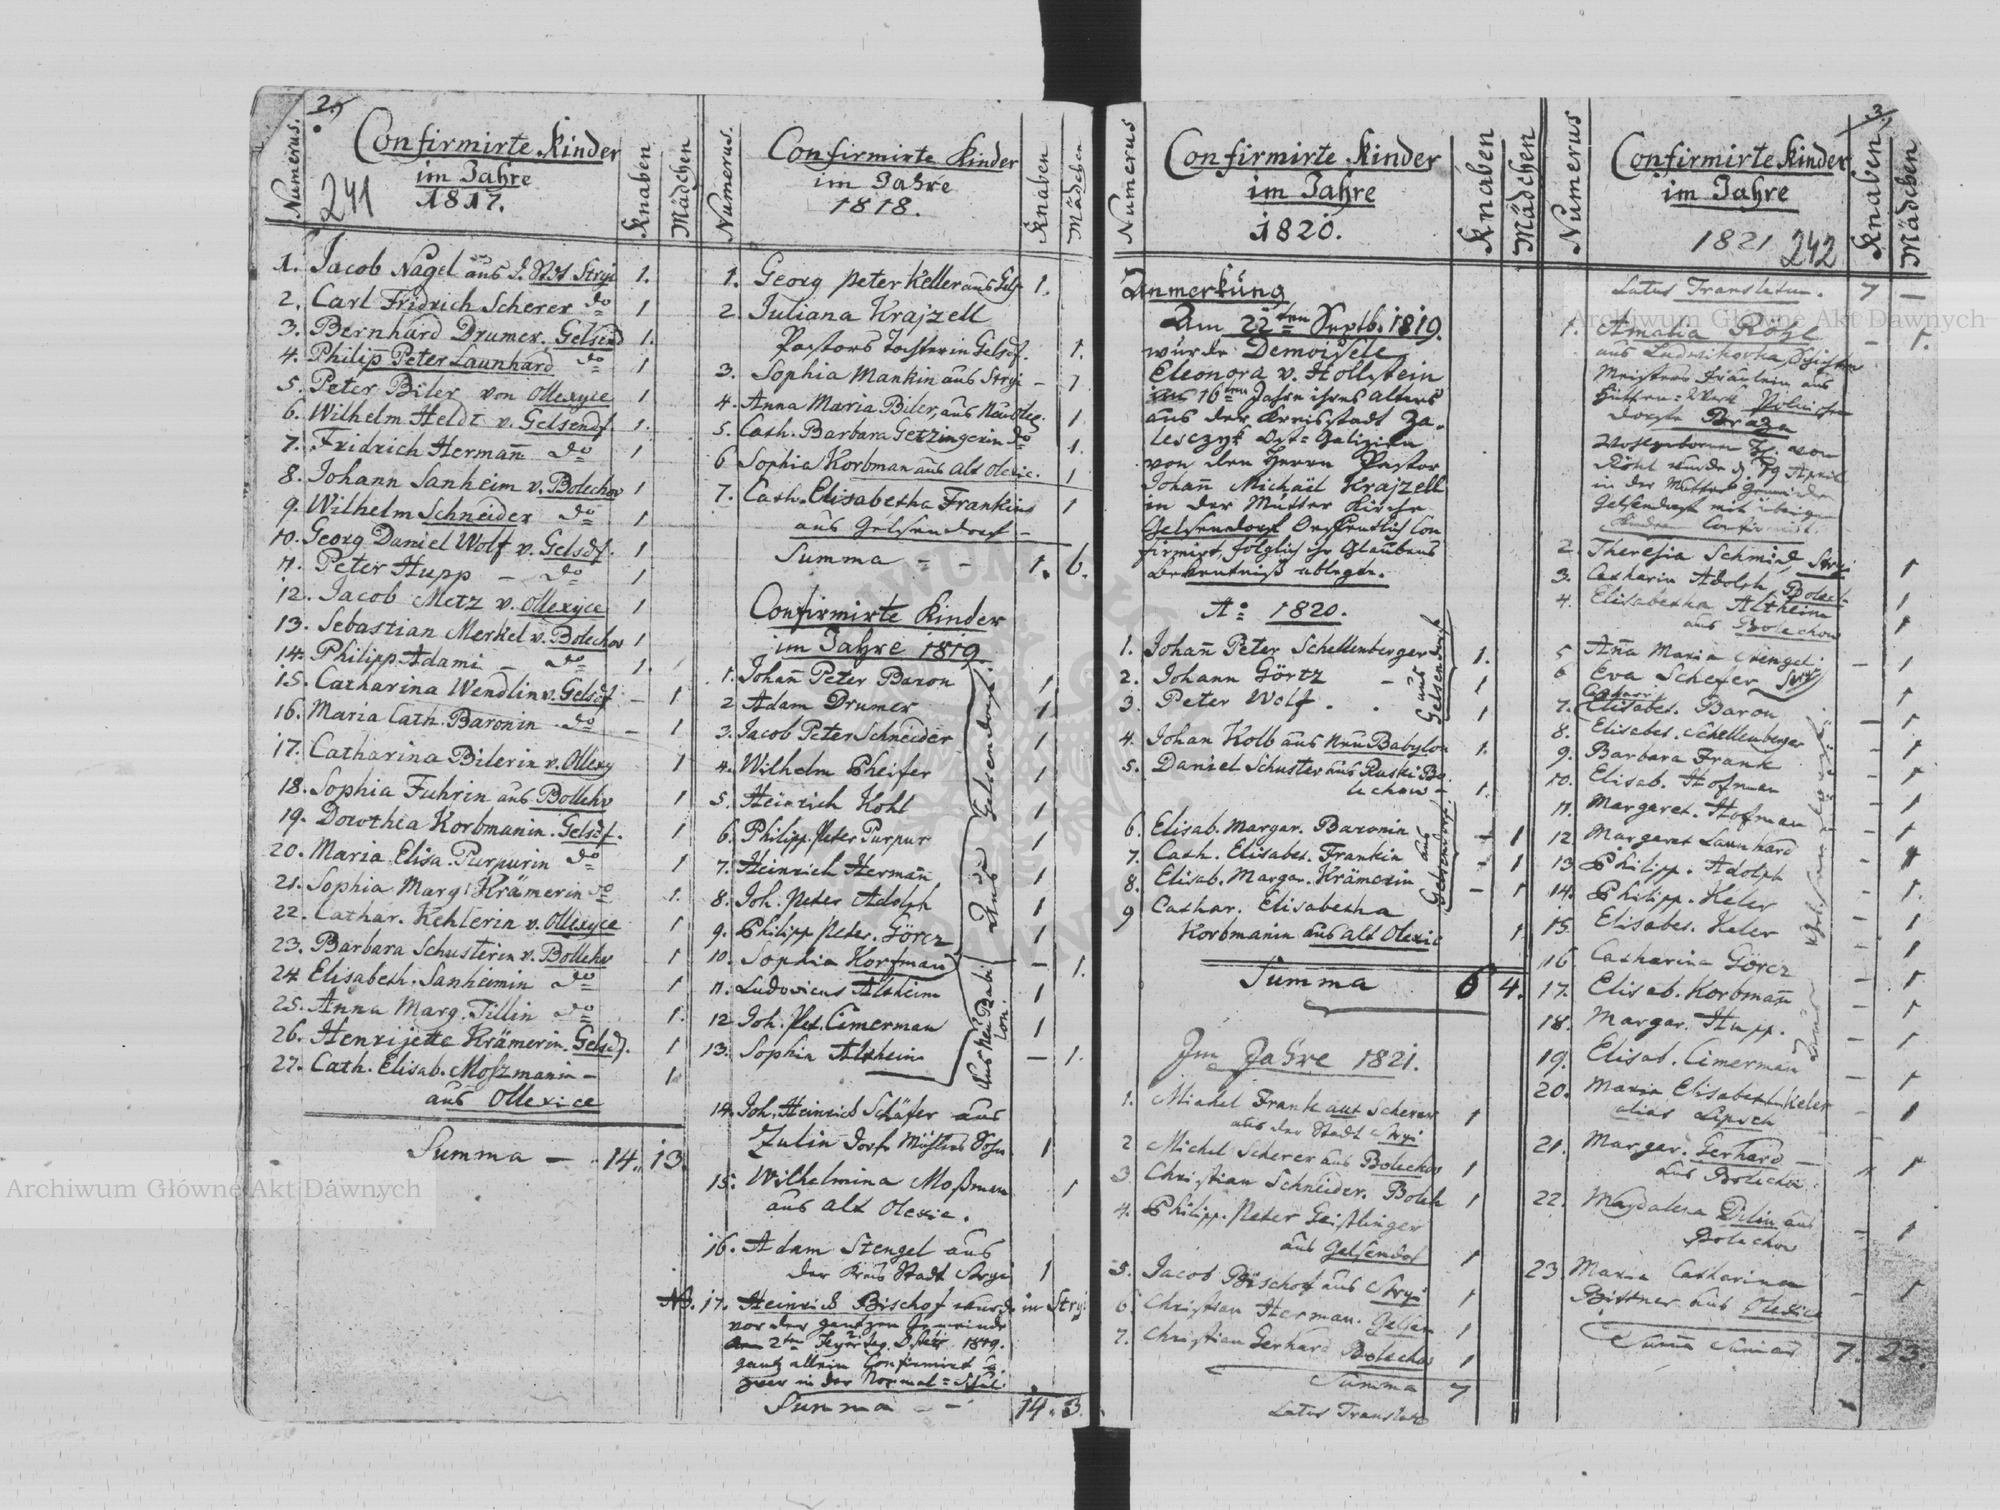 2.
Numerus.
Confirmirte Kinder
im Jahre
1817.
Knaben
Mädchen
241
1. Jacob Nagel aus d. St. Stryi 1.
2. Carl Fridrich Scherer do 1
3. Bernhard Drumer. Gelsend 1.
4. Philip Peter Launhard do 1
5. Peter Biler von Ollexyce 1
6. Wilhelm Heldt v. Gelsendf 1.
7. Fridrich Hermañ do 1
8. Johann Sanheim v. Bolechov 1
9. Wilhelm Schneider do 1
10. Georg Daniel Wolf v. Gelsdf. 1
11. Peter Hupp – do 1
12. Jacob Metz v. Ollexyce 1
13. Sebastian Merkel v. Bolechov 1
14. Philipp Adami – do 1.
15. Catharina Wendlin v. Gelsdf – 1
16. Maria Cath. Baronin do – 1
17. Catharina Bilerin v. Ollexy 1
18. Sophia Fuhrin aus Bollehv 1
19. Dorothea Korbmanin. Gelsdf. 1
20. Maria Elisa. Purpurin do 1
21. Sophia Marg. Krämerin do 1.
22. Cathar. Kehlerin v. Ollexyce 1
23. Barbara Schusterin v. Bollehv 1
24 Elisabeth. Sanheimin do 1
25. Anna Marg. Tillin do 1.
26. Henrijette Krämerin. Gelsdf. 1
27. Cath. Elisab. Moszmanin – 1
aus Ollexice
Summa – 14. 13.
Numerus.
Confirmirte Kinder
im Jahre
1818.
Knaben
Mädchen
1. Georg Peter Keller aus Gels 1.
2. Juliana Krajzell
Pastors Tochter in Gelsdf. 1.
3. Sophia Mankin aus Stryi – 1
4. Anna Maria Biler, aus Neu Oleg 1
5. Cath. Barbara Getzingerin do 1.
6 Sophia Korbman aus Alt Olexic. 1
7. Cath. Elisabetha Frankin 1
aus Gelsendorf –
Summa – – 1. 6.
Confirmirte Kinder
im Jahre 1819
1. Johañ Peter Baron 1
2 Adam Drumer 1
3. Jacob Peter Schneider 1
4. Wilhelm Pheifer 1
5. Heinrich Kohl 1
6. Philipp Peter Purpur 1
7. Heinrich Hermañ 1
8. Joh. Peter Adolph 1
9. Philipp Peter. Görcz 1
Aus Gelsendorf.
10. Sophia Korfman – 1.
11. Ludovicus Altheim 1
12 Joh. Pet. Cimerman 1
13. Sophia Altheim – 1.
Aus Neu Babi
lon.
14. Joh. Heinrich Schäfer aus
Zulin Dorf Müllers Sohn 1
15. Wilhelmina Moßman 1
aus Alt Olexic.
16. Adam Stengel aus
der Kreis Stadt Stryi 1
NB. 17. Heinrich Bischof wurde in Stryi
vor der ganzen Gemeinde
2ten Feyertag Oster 1819.
ganz allein Confirmirt u.
zwar in der Normal = Schul.
Summa – – 14. 3.
Numerus
Confirmirte Kinder
im Jahre
1820.
Knaben
Mädchen
Anmerkung
Am 22ten Septb. 1819.
wurde Demoisele
Eleonora v. Hollstein
16ten Jahre ihres Alters
aus der Kreisstadt Za-
lesczyk Ost = Galizien
von den Herrn Pastor
Johañ Michäil Krajzell
in der Mutter Kirche
Gelsendorf Oeffentlich Con
firmirt, folglich ihr Glaubens
Bekentniß ablegte.
Ao 1820.
1. Johañ Peter Schellenberger 1.
2. Johann Görtz – 1
3. Peter Wolf . . 1
aus
Gelsendorf
4. Johan Kolb aus Neu Babylon 1.
5. Daniel Schuster aus Ruski Bo
lechow – 1.
6. Elisab. Margar. Baronin – 1
7. Cath. Elisabet. Frankin – 1
8. Elisab. Margar. Krämerin – 1
aus
Gelsendorf.
9 Cathar. Elisabetha
Korbmanin aus Alt Olexic 1
Summa 6 4.
Im Jahre 1821.
1. Michel Frank aut Scherer 1
aus der Stadt Stryi
2 Michel Scherer aus Bolechov 1
3. Christian Schneider. Bolch 1
4. Philipp. Peter Geistlinger
aus Gelsendof 1
5. Jacob Bischof aus Stryi 1
6. Christian Herman. Gelsen 1
7. Christian Gerhard Bolechov 1
Summa 7
Latus Translate
3.
Numerus
Confirmirte Kinder
im Jahre
1821
242
Knaben
Mädchen
Latus Translatum. 7 –
1. Amalia Röhl – 1.
aus Ludwikovka
Meisters Fräulein aus
Hütten = Werk
Wohlgeborn H. von
Röhl wurde d. 19 April
in der Mutter Gemeinde
Gelsendorf mit übrigen
Kindern Confirmirt.
2. Theresia Schmid, Stryi 1
3. Catharin Adolph, Bolech 1
4. Elisabetha Altheim
aus Bolechow 1
5 Aña Maria Stengel. – 1
6 Eva Schefer Stryi 1
7. Cathari Elisabet. Baron – 1
8. Elisabet. Schellenberger 1
9. Barbara Frank – 1
10. Elisab. Hofman – 1
11. Margaret. Hofman – 1
12 Margaret Launhard – 1
13 Philipp. Adolph – 1
14. Philipp. Keler – 1.
15. Elisabet. Keler – 1
16 Catharina Görcz – 1
17. Elisab. Korbmañ – 1
18. Margar. Hupp. – 1
19. Elisab. Cimerman – 1
20. Maria Elisabeth Keler
alias Lipsch – 1
21. Margar. Gerhard –
aus Bolechov 1
22. Magdalena Dilin aus
Bolechow – 1
23. Maria Catharina
Bittner aus Olexice – 1
Suma Sumar 7. 23.
Archiwum Główne Akt Dawnych
Archiwum Główne Akt Dawnych